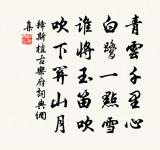 青雲千里心
白鷺一點雪
誰將玉笛吹
吹下山月
釋斯植古樂府詞典網
集